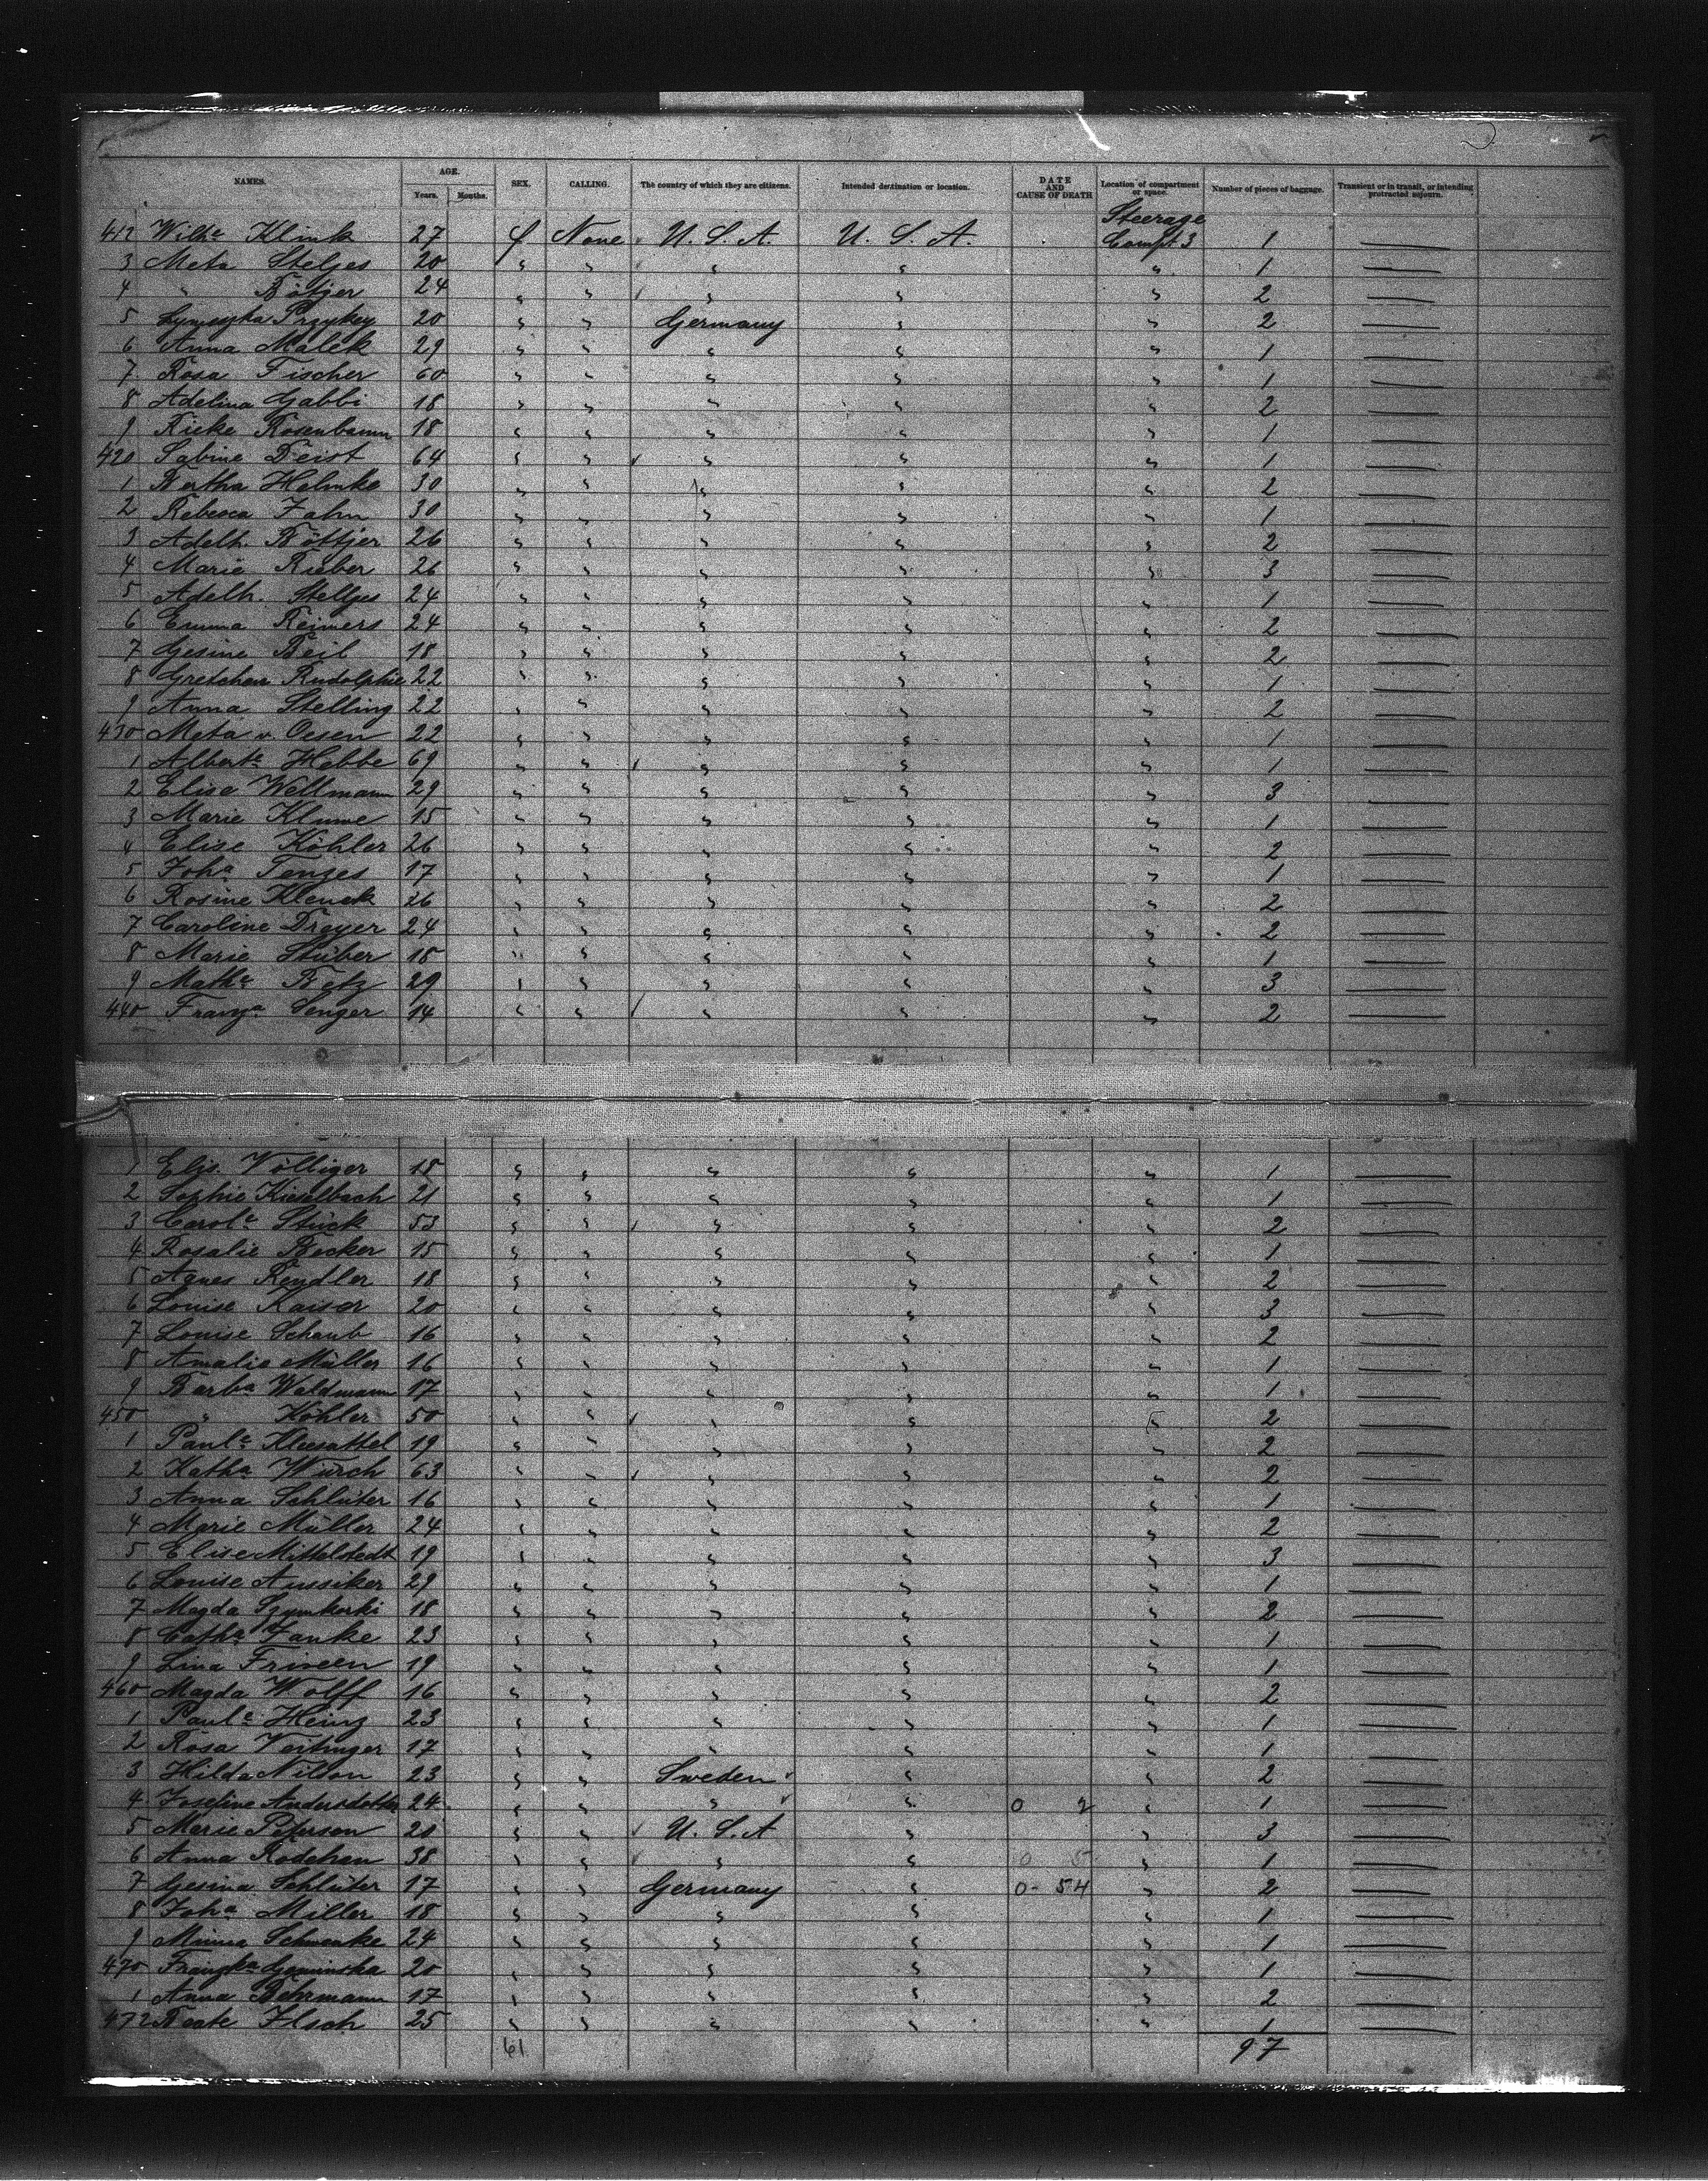 NAMES. AGE. Years. Months. SEX. CALLING. The country of which they are citizens. Intended destination or location. DATE AND CAUSE OF DEATH Location of compartment or space. Number of pieces of baggage. Transient or in transit, or intending protracted sojourn.
Steerage
412 Wilhe Klink 27 f None U. S. A. U. S. A. Compt. 3 1 —
3 Meta Stelges 20 " " " " " 1 —
4 " Bötjer 24 " " " " " 2 —
5 Przykey 20 " " Germany " " 2 —
6 Anna Malek 29 " " " " " 1 —
7 Rosa Fischer 60 " " " " " 1 —
8 Adelina Gabbi 18 " " " " " 2 —
9 Rieke Rosenbaum 18 " " " " " 1 —
420 Sabine Deist 64 " " " " " 1 —
1 Bertha Helmke 30 " " " " " 2 —
2 Rebecca Zahn 30 " " " " " 1 —
3 Adelh. Böttjer 26 " " " " " 2 —
4 Marie Rieber 26 " " " " " 3 —
5 Adelh. Stellges 24 " " " " " 1 —
6 Emma Reimers 24 " " " " " 2 —
7 Gesine Beil 18 " " " " " 2 —
8 Gretchen Rudolphie 22 " " " " " 1 —
9 Anna Stelling 22 " " " " " 2 —
430 Meta v. Oesen 22 " " " " " 1 —
1 Alberte Hebbe 69 " " " " " 1 —
2 Elise Wellmann 29 " " " " " 3 —
3 Marie Klume 15 " " " " " 1 —
4 Elise Köhler 26 " " " " " 2 —
5 Joha Tenges 17 " " " " " 1 —
6 Rosine Klenck 26 " " " " " 2 —
7 Caroline Dreyer 24 " " " " " 2 —
8 Marie Stüber 18 " " " " " 1 —
9 Mathe Betz 29 " " " " " 3 —
440 Franza Senger 14 " " " " " 2 —
1 Elis. Völliger 18 " " " " " 1 —
2 Sophie Kieselbach 21 " " " " " 1 —
3 Carole Stück 53 " " " " " 2 —
4 Rosalie Becker 15 " " " " " 1 —
5 Agnes Rendler 18 " " " " " 2 —
6 Louise Kaiser 20 " " " " " 3 —
7 Louise Schaub 16 " " " " " 2 —
8 Amalie Müller 16 " " " " " 1 —
9 Barba Waldmann 17 " " " " " 1 —
450 " Köhler 50 " " " " " 2 —
1 Paule Kleesattel 19 " " " " " 2 —
2 Katha Würch 63 " " " " " 2 —
3 Anna Schlüter 16 " " " " " 1 —
4 Marie Müller 24 " " " " " 2 —
5 Elise Mittelstedt 19 " " " " " 3 —
6 Louise Aussiker 29 " " " " " 1 —
7 Magda Szymkorki 18 " " " " " 2 —
8 Catha Janke 23 " " " " " 1 —
9 Lina Friseen 19 " " " " " 1 —
460 Magda Wolff 16 " " " " " 2 —
1 Paule Heinz 23 " " " " " 1 —
2 Rosa Vertinger 17 " " " " " 1 —
3 Hilda Nilson 23 " " Sweden " " 2 —
4 Josefine Andersdotter 24 " " " " 0 2 " 1 —
5 Marie Peterson 20 " " U. S. A " " 3 —
6 Anna Rodehan 38 " " " " 0 5 " 1 —
7 Gesina Schlüter 17 " " Germany " 0- 54 " 2 —
8 Joha Miller 18 " " " " " 1 —
9 Minna Schwenke 24 " " " " " 1 —
470 20 " " " " " 1 —
1 Anna Behrmann 17 " " " " " 2 —
472 Beate Ilsch 25 " " " " " 1 —
61 97